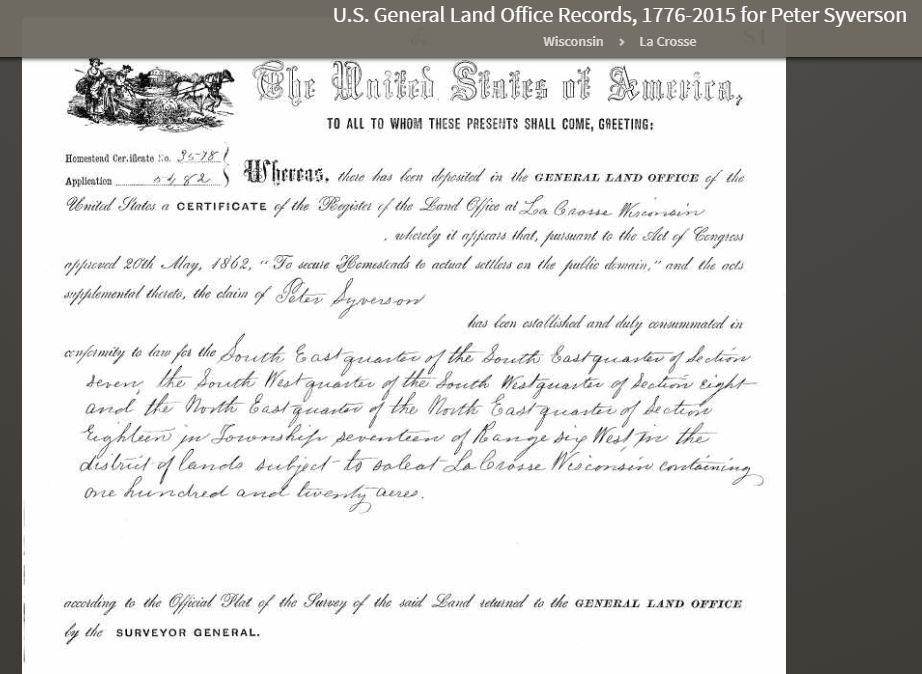 U.S. General Land Office Records, 1776-2015 for Peter Syverson
Wisconsin > La Crosse
The United States of America,
TO ALL TO WHOM THESE PRESENTS SHALL COME, GREETING:
Homestead Certificate No. 3578
Application 5482
Whereas, there has been deposited in the GENERAL LAND OFFICE of the
United States a CERTIFICATE of the Register of the Land Office at La Crosse Wisconsin
, whereby it appears that, pursuant to the Act of Congress
approved 20th May, 1862, "To secure Homesteads to actual settlers on the public domain," and the acts
supplemental thereto, the claim of Peter Syverson
has been established and duly consummated in
conformity to law for the South East quarter of the South East quarter of Section
seven, the South West quarter of the South West quarter of Section eight
and the North East quarter of the North East quarter of Section
Eighteen in Township seventeen of Range six West in the
district of lands subject to sale at La Crosse Wisconsin containing
one hundred and twenty acres.
according to the Official Plat of the Survey of the said Land returned to the GENERAL LAND OFFICE
by the SURVEYOR GENERAL.